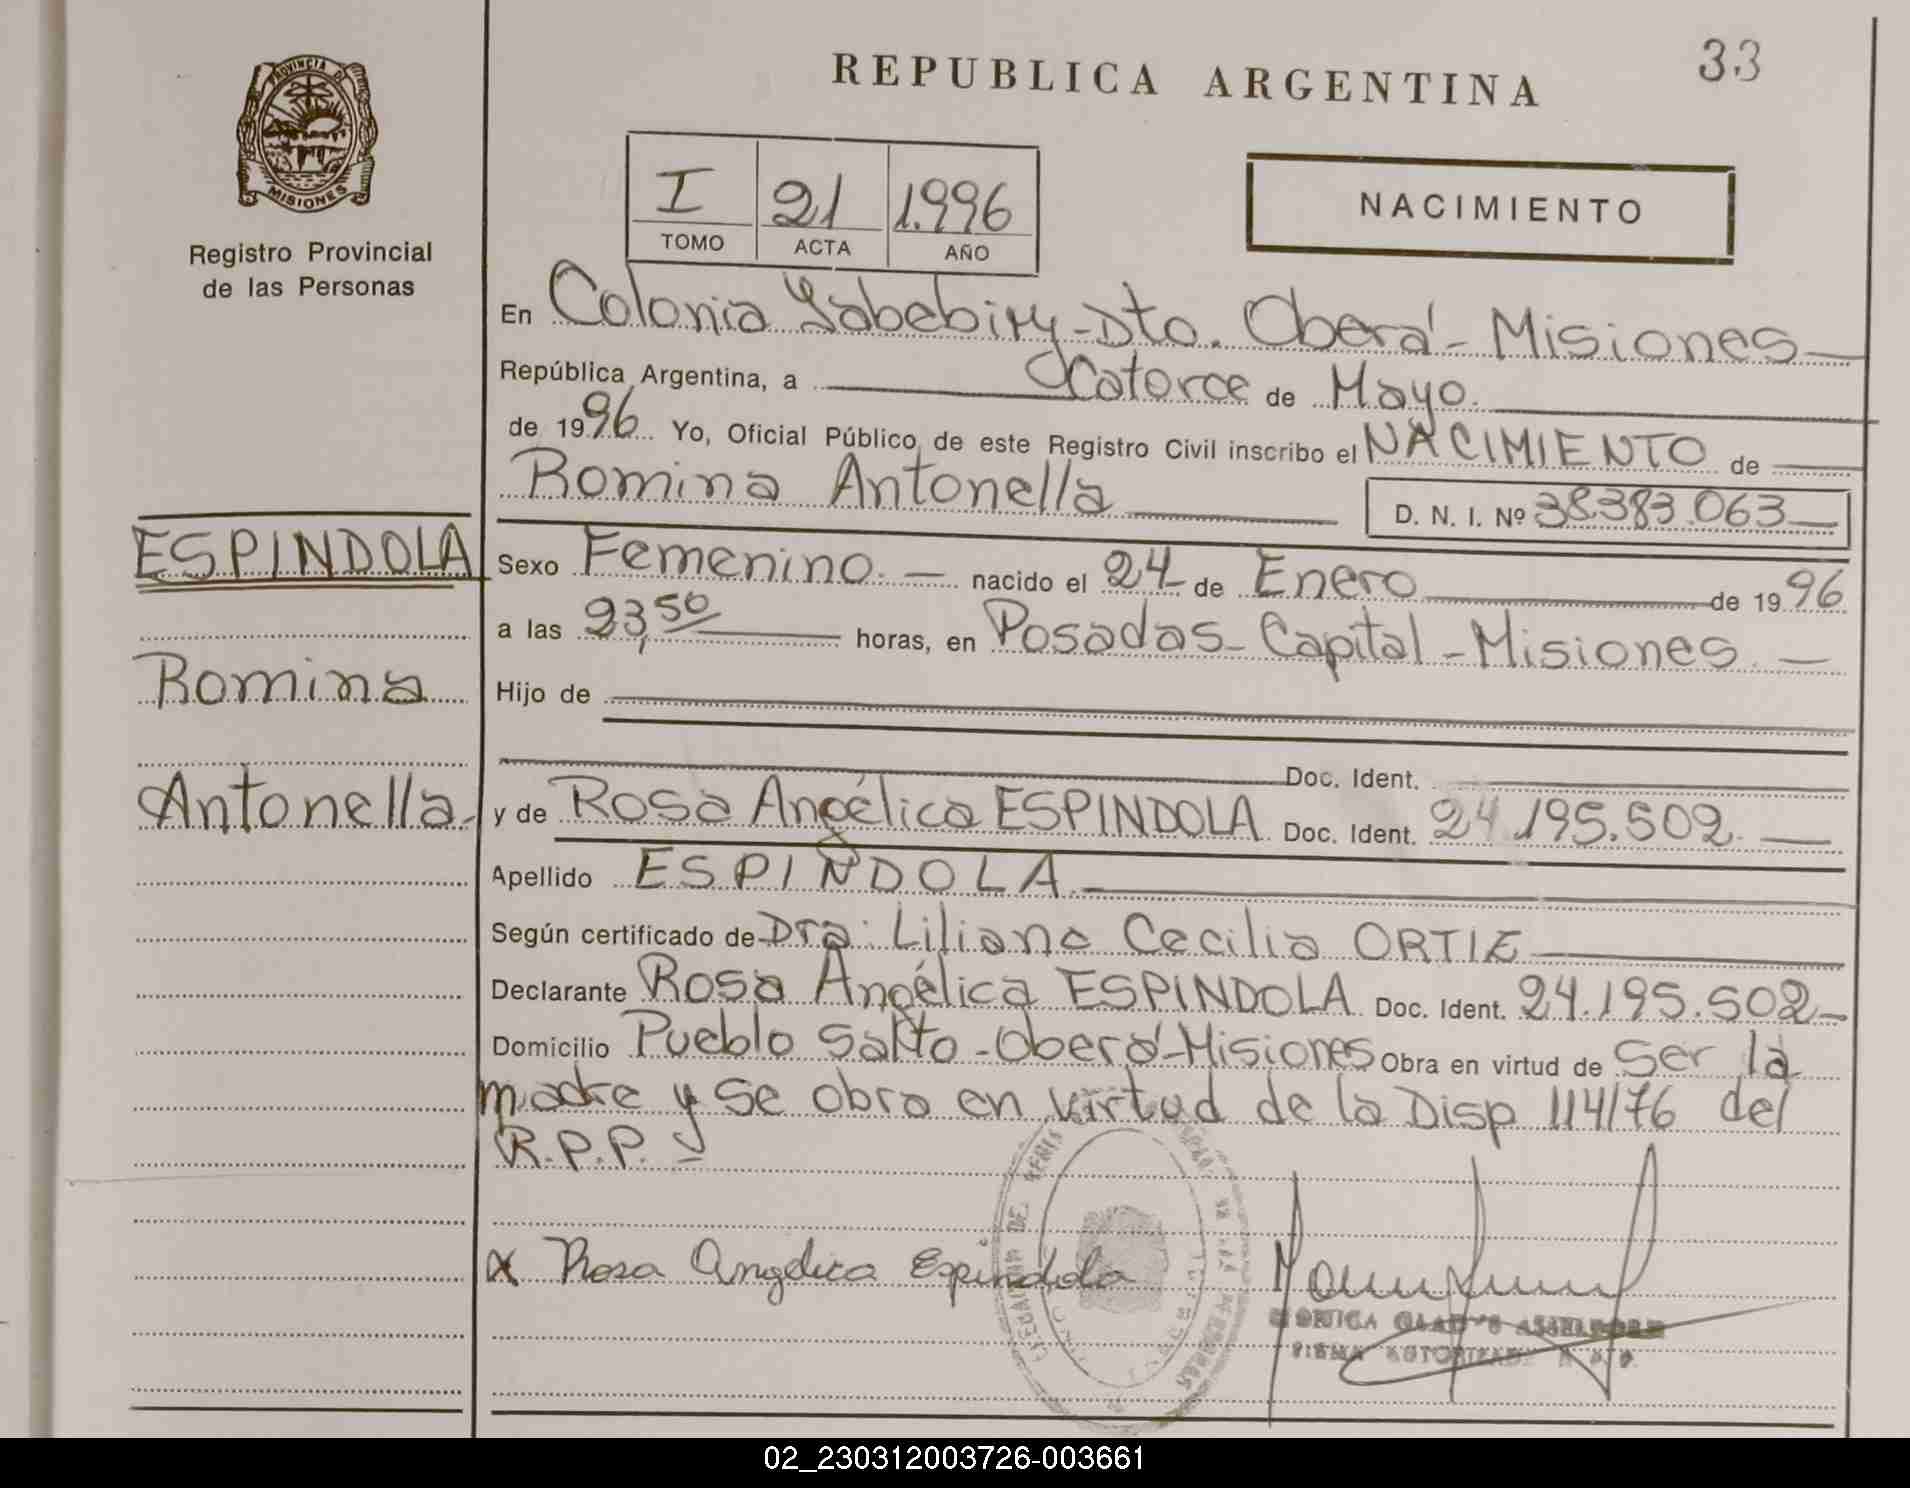 33
REPUBLICA ARGENTINA
PROVINCIA DE
MISIONES
Registro Provincial
de las Personas
I 21 1.996
TOMO ACTA AÑO
NACIMIENTO
En Colonia Yabebiry-Dto. Oberá - Misiones
República Argentina, a Catorce de Mayo.
de 1996 Yo, Oficial Público de este Registro Civil inscribo el NACIMIENTO de
Romina Antonella D. N. I. Nº 38.383.063
ESPINDOLA
Romina
Antonella
Sexo Femenino. nacido el 24 de Enero de 1996
a las 23,50 horas, en Posadas - Capital - Misiones.
Hijo de
Doc. Ident.
y de Rosa Angélica ESPINDOLA Doc. Ident. 24.195.502.
Apellido ESPINDOLA
Según certificado de Dra. Liliana Cecilia ORTIZ
Declarante Rosa Angélica ESPINDOLA Doc. Ident. 24.195.502
Domicilio Pueblo Salto - Oberá - Misiones Obra en virtud de ser la
madre y se obra en virtud de la Disp 114/76 del
R.P.P.
X Rosa Angelica Espindola
MONICA GLADYS
FIRMA AUTORIZADA R.P.P.
02_230312003726-003661